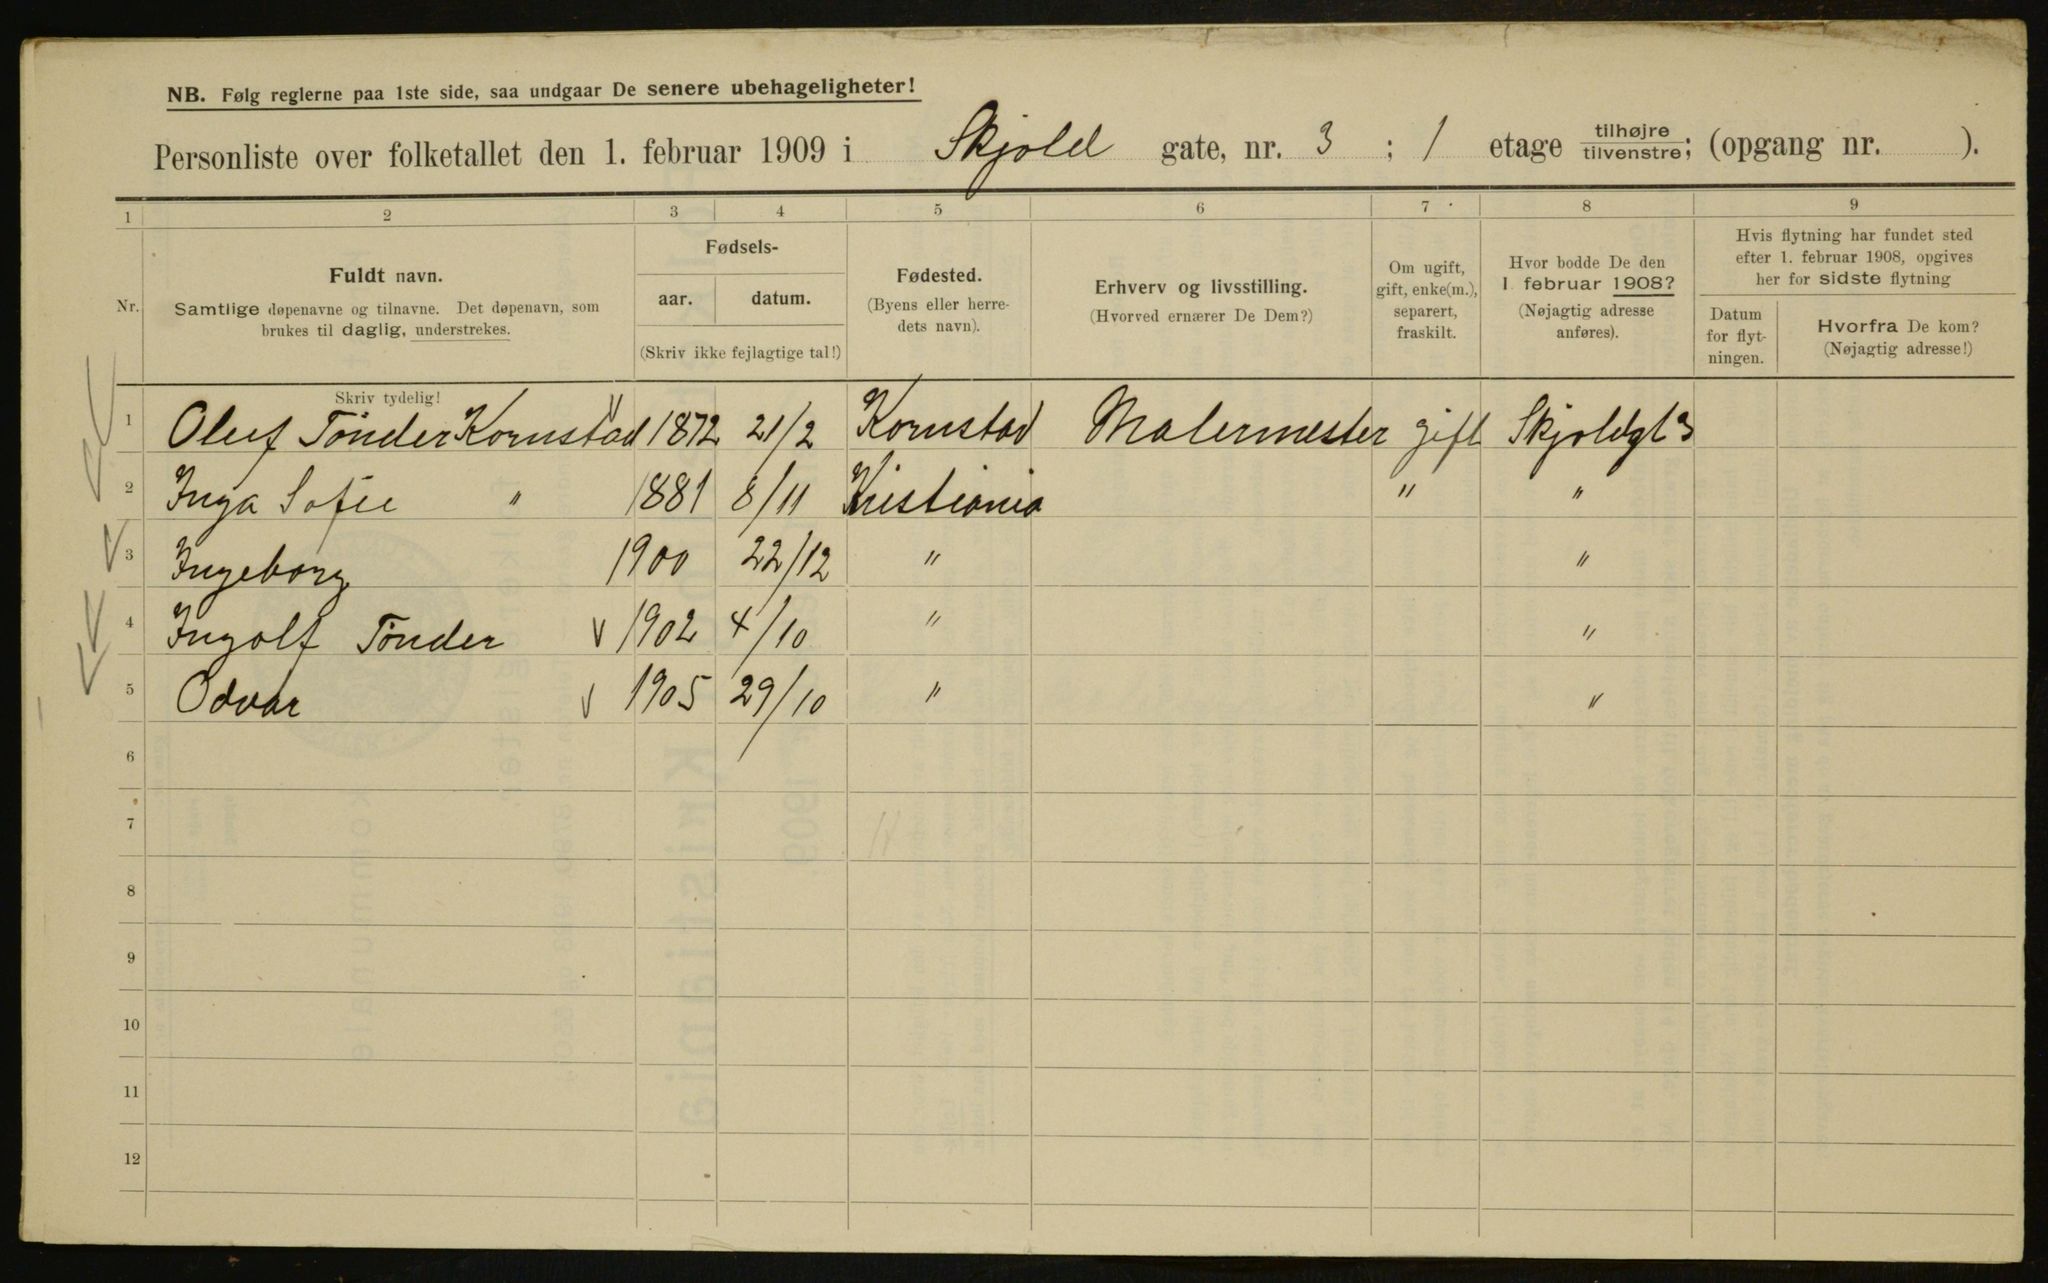 NB. Følg reglerne paa 1ste side, saa undgaar De senere ubehageligheter!
Personliste over folketallet den 1. februar 1909 i Skjold gate, nr. 3 ; 1 etage tilhøjre/tilvenstre; (opgang nr. ).
1 2 3 4 5 6 7 8 9
Nr.
Fuldt navn.
Samtlige døpenavne og tilnavne. Det døpenavn, som
brukes til daglig, understrekes.
Fødsels-
aar. datum.
(Skriv ikke fejlagtige tal!)
Fødested.
(Byens eller herre-
dets navn).
Erhverv og livsstilling.
(Hvorved ernærer De Dem?)
Om ugift,
gift, enke(m.),
separert,
fraskilt.
Hvor bodde De den
1. februar 1908?
(Nøjagtig adresse
anføres).
Hvis flytning har fundet sted
efter 1. februar 1908, opgives
her for sidste flytning
Datum
for flyt-
ningen.
Hvorfra De kom?
(Nøjagtig adresse!)
Skriv tydelig!
1 Oluf Tönder Kornstad 1872 21/2 Kornstad Malermester gift Skjoldgt 3
2 Inga Sofie " 1881 8/11 Kristiania " "
3 Ingeborg 1900 22/12 " "
4 Ingolf Tönder 1902 4/10 " "
5 Odvar 1905 29/10 " "
6
7
8
9
10
11
12